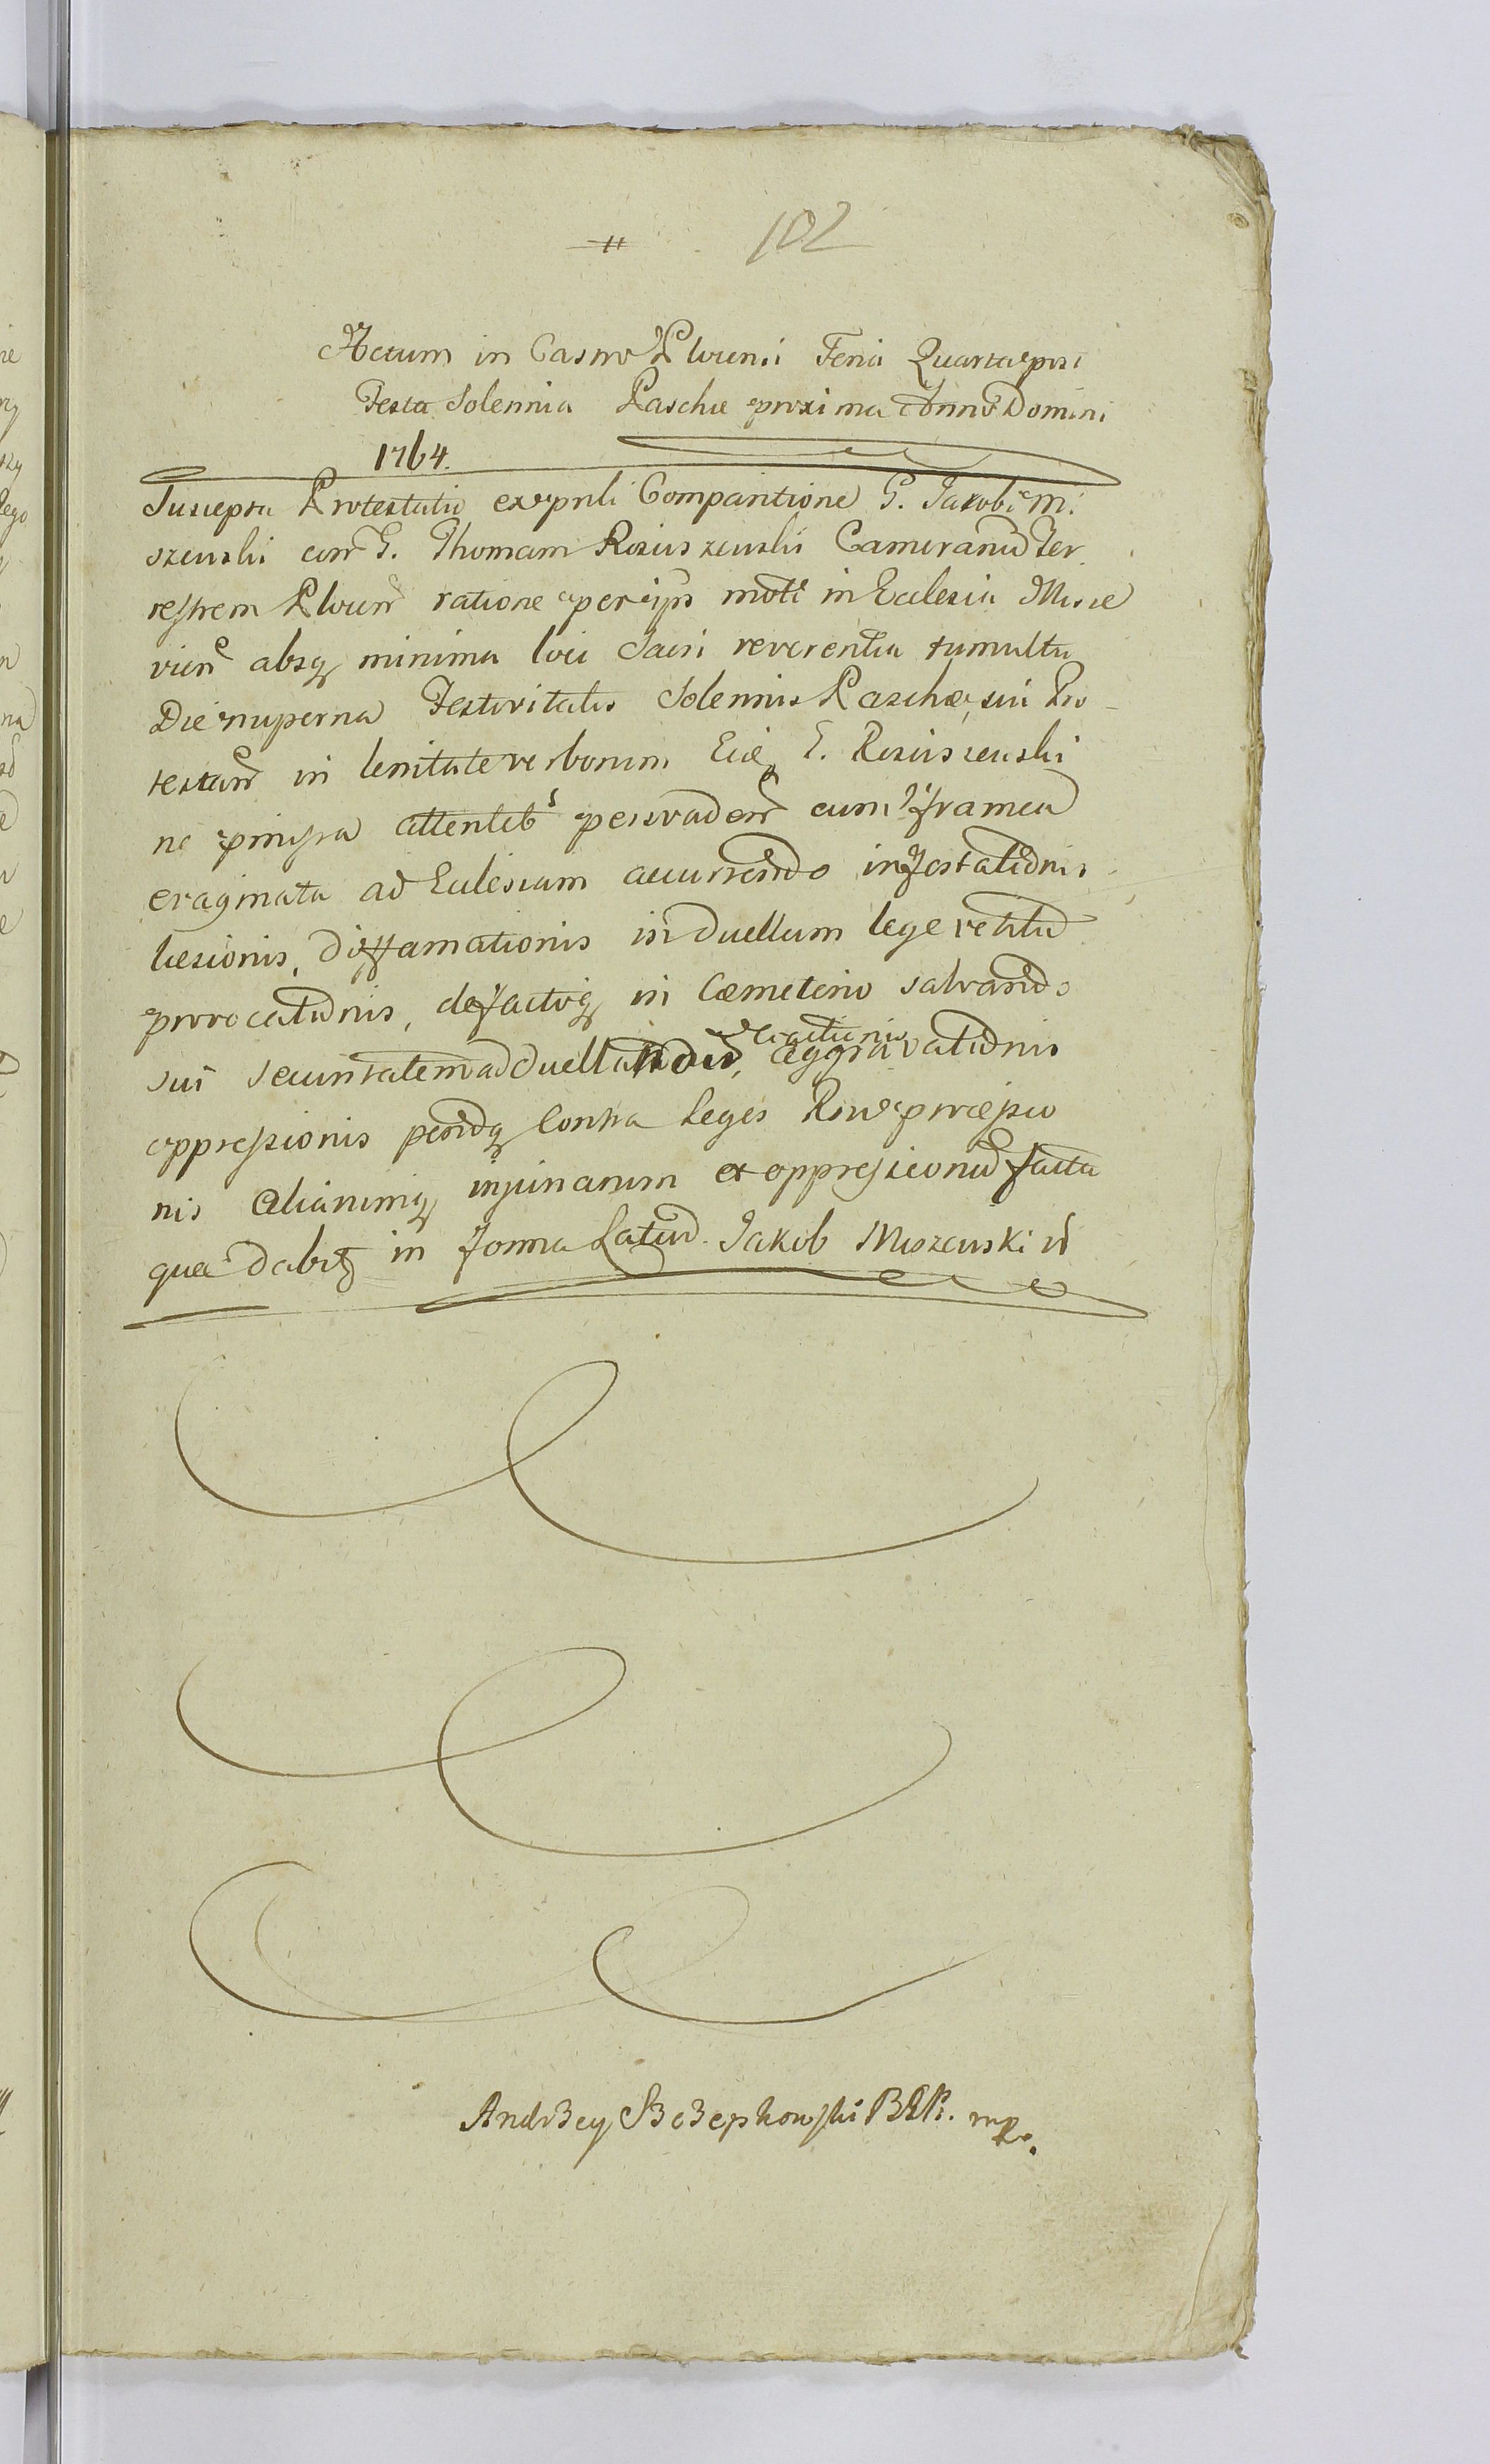 102
Actum in Castro Plocensi Feria Quarta post
Festa Solennia Paschae proxima Anno Domini
1764.
Suscepta Protestatio ex pnli Comparitione G. Jakobi Mi:
szewski con G. Thomam Rosciszewski Camerarium Ter
restrem Plocen ratione per ipsū moti in Ecclesia Misze
vien absq minima loci Sacri reverentia tumultu
Die nuperna Festivitatis Solennis Paschae, sui Pro
testan in lenitate verborum Eidē G. Rosciszewski
ne attentet persvaden cum framea
evaginata ad Ecclesiam accurrendo infestationis
laesionis, diffamationis in Duellum lege vetitū
provocationis, defactoq in Caemeterio salvando
sui securitatem ad Duellandū, coactionis aggravationis
oppressionis contra Leges
nis aliarumq injuriarum et oppressionū facta
quae dabitᷣ in forma Latiori. Jakob Miszewski
Andrzey Szczepkowski BGP. mp.